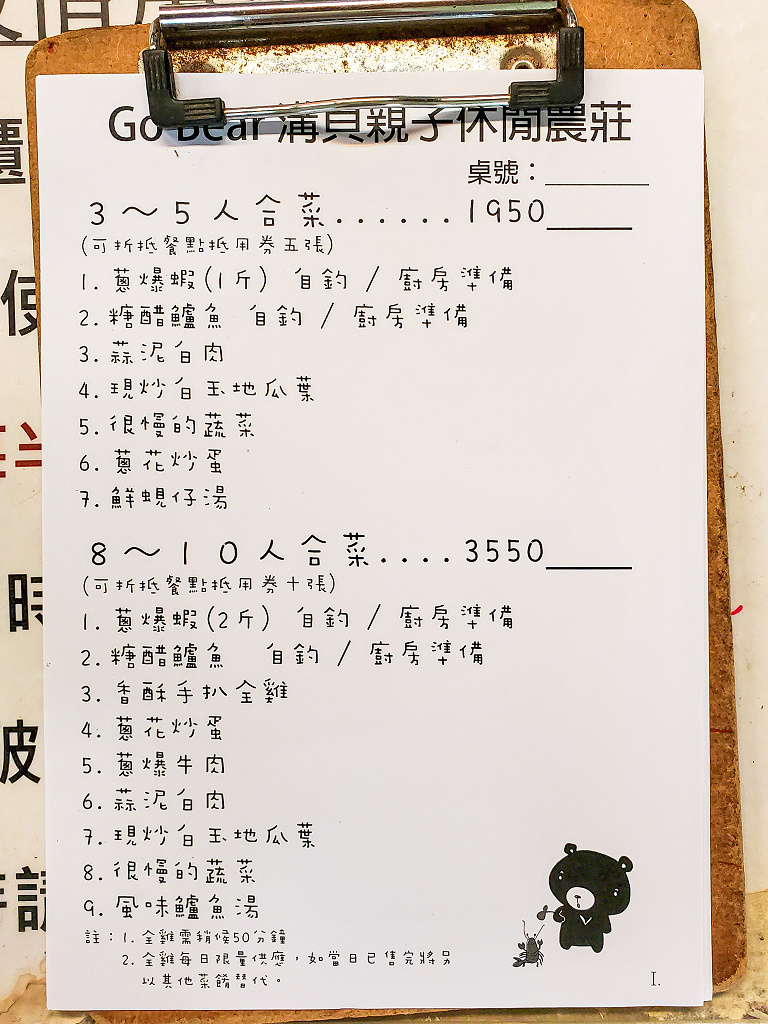 Go Bear 溝貝親子休閒農莊
桌號：______
3～5人合菜......1950_____
(可折抵餐點抵用券五張)
1. 蔥爆蝦(1斤) 自釣 / 廚房準備
2. 糖醋鱸魚 自釣 / 廚房準備
3. 蒜泥白肉
4. 現炒白玉地瓜葉
5. 很慢的蔬菜
6. 蔥花炒蛋
7. 鮮蜆仔湯
8～10人合菜....3550_____
(可折抵餐點抵用券十張)
1. 蔥爆蝦(2斤) 自釣 / 廚房準備
2. 糖醋鱸魚 自釣 / 廚房準備
3. 香酥手扒全雞
4. 蔥花炒蛋
5. 蔥爆牛肉
6. 蒜泥白肉
7. 現炒白玉地瓜葉
8. 很慢的蔬菜
9. 風味鱸魚湯
註：1. 全雞需稍候50分鐘
2. 全雞每日限量供應，如當日已售完將另
以其他菜餚替代。
I.
使
時
被
請